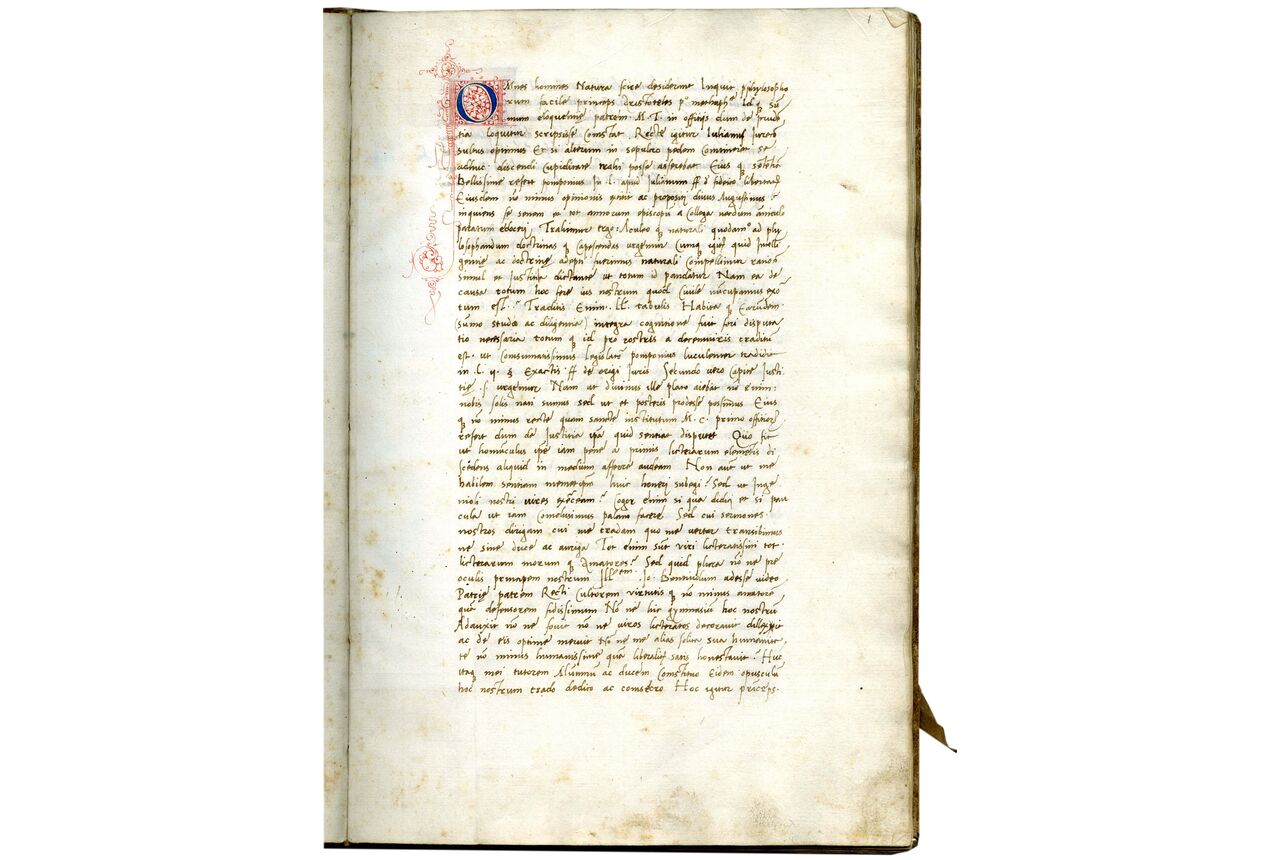 1
OMnes homines Natura scire desiderant Inquit phylosopho
rum facile princeps Aristoteles p° methaph Id q su
mum eloquentie patrem . M. T. in officijs dum de prude
tia loquitur scripsisse Constat Recte igitur Iulianus Iurecō
sultus optimus Et si alterum in sepulcro pedem Contineret se
adhuc discendi Cupiditate trahi posse asserebat Eius q sētētiā
Bellissime refert pomponius In l. apud Iulianum ff d fideico libertad
Eiusdem nō minus opinionis extit ac propositj divus Augustinus
inquiens se senem ex tot annorum episcopū a Collega nondum anniculo
paratum edocerj, Trahimur ergo. Aculeo q naturali quodamº ad phy
losophandum doctrinas q Capescendas urgemur Cumq igit quid Intelli
gentie ac doctrine adepti fuerimus naturali Compellimur ratione
simul et Justitia dictante ut totum id pandatur Nam ea de
causa totum hoc fere ius nostrum quod Civile nūcupamus exō
tum est. Traditis Enim . ll. tabulis Habita q Earundem
(sumo studio ac diligentia) integra cognitione fuit fori disputa
tio necessaria totum q id pro rostris a decemviris traditū
est . ut Consumatissimus legislator pomponius luculenter tradidit
in l. ij. § Exactis ff de origi Iuris Secundo vero Capite Iusti
tie .s. urgemur Nam ut divinus ille plato aiebat nō enim
nobis solis nati sumus sed ut et posteris prodesse possimus Eius
q nō minus recte quam sancte institutum M. C. primo officior
refert dum de Justitia ipa quid sentiat disputet Quo fit
ut homūculus ipe iam pene a primis licterarum elemētis di
scēdens aliquid in medium afferre audeam Non aut ut me
habilem sentiam memetipm huic honerj subegi? Sed ut Inge
nioli nostri vires exerceam? Cogor Enim si qua didici et si pau
cula ut iam Conclusimus palam facere Sed cui sermones
nostros dirigam cui me tradam quo me vertar transibimus
ne sine duce ac auriga Tot enim sūt viri licteratissimi tot
licterarum morum q Amatores? Sed quid plura nō ne pre
oculis principem nostrum Illem .Io. Bentivolum adesse video
Patrie patrem Recti Cultorem virtutis q nō minus amatorē
quā defensorem fidissimum Nō ne hic gymnasiū hoc nostrū
Adauxit nō ne fovit nō ne viros licteratos decoravit dillexit
ac de eis optime meruit Nō ne me alias solita sua humanita
te nō minus humanissime quā liberalissime satis honestavit? Hūc
itaq mei tutorem Alumnū ac ducem Constituo Eidem opusculū
hoc nostrum trado dedico ac consecro Hoc igitur prīceps